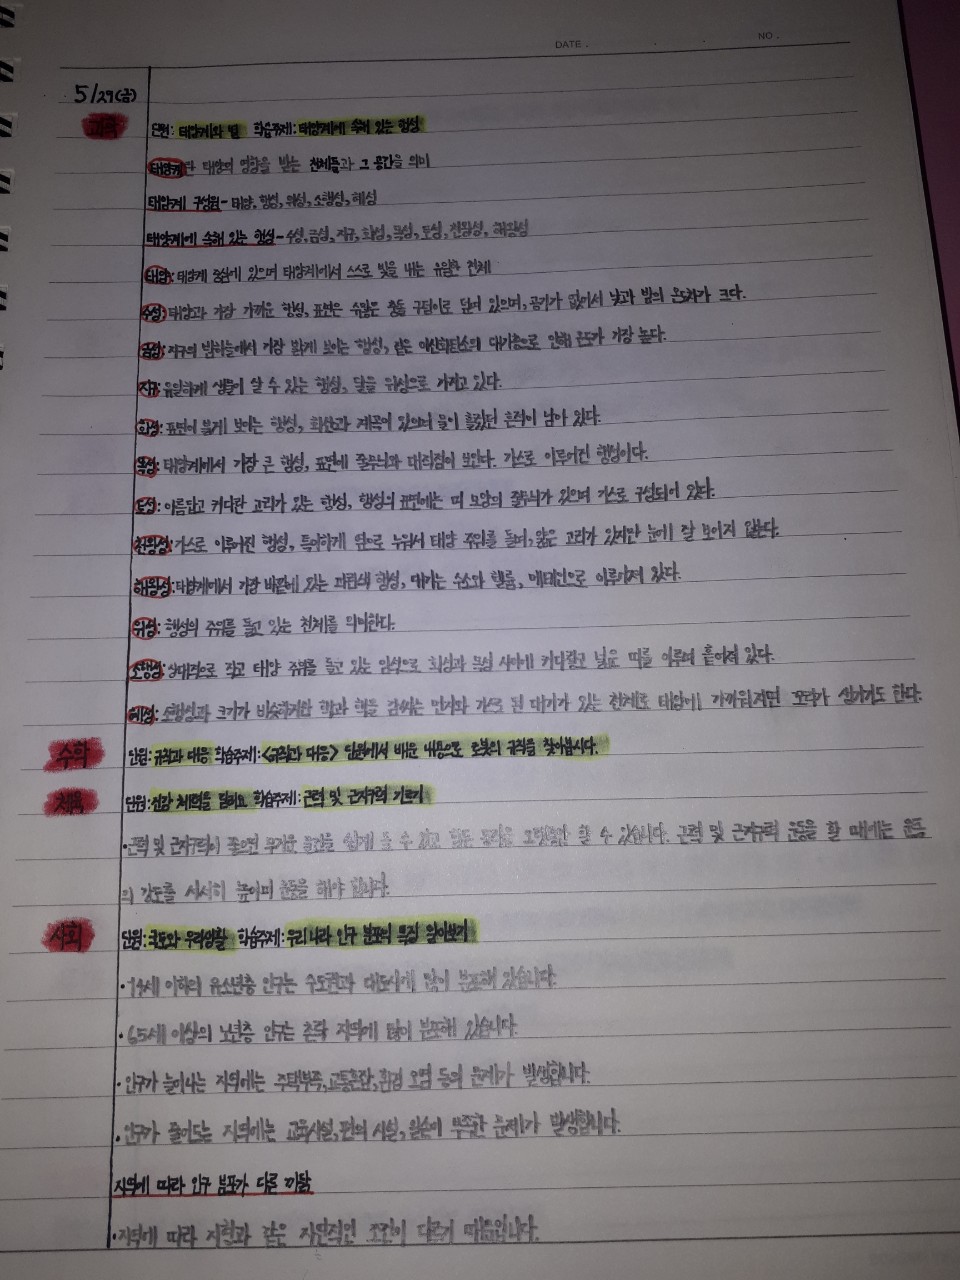 DATE . . . NO .
5/29(금)
과학 단원: 태양계와 별 학습주제: 태양계에 속해 있는 행성
태양계란 태양의 영향을 받는 천체들과 그 공간을 의미
태양계 구성원- 태양, 행성, 위성, 소행성, 혜성
태양계에 속해 있는 행성- 수성, 금성, 지구, 화성, 목성, 토성, 천왕성, 해왕성
태양: 태양계 중심에 있으며 태양계에서 스스로 빛을 내는 유일한 천체
수성: 태양과 가장 가까운 행성, 표면은 수많은 충돌 구덩이로 덮여 있으며, 공기가 없어서 낮과 밤의 온차가 크다.
금성: 지구의 밤하늘에서 가장 밝게 보이는 행성, 이산화탄소의 대기층으로 인해 온도가 가장 높다.
지구: 유일하게 생물이 살 수 있는 행성, 달을 위성으로 가지고 있다.
화성: 표면이 붉게 보이는 행성, 화산과 계곡이 있으며 물이 흘렀던 흔적이 남아 있다.
목성: 태양계에서 가장 큰 행성, 표면에 줄무늬와 대적점이 보인다. 가스로 이루어진 행성이다.
토성: 아름답고 커다란 고리가 있는 행성, 행성의 표면에는 띠 모양의 줄무늬가 있으며 가스로 구성되어 있다.
천왕성: 가스로 이루어진 행성, 특이하게 옆으로 누워서 태양 주위를 돌며, 얇은 고리가 있지만 눈에 잘 보이지 않는다.
해왕성: 태양계에서 가장 바깥에 있는 파란색 행성, 대기는 수소와 헬륨, 메테인으로 이루어져 있다.
위성: 행성의 주위를 돌고 있는 천체를 의미한다.
소행성: 상대적으로 작고 태양 주위를 돌고 있는 암석으로 화성과 목성 사이에 커다랗고 넓은 띠를 이루며 흩어져 있다.
혜성: 소행성과 크기가 비슷하지만 핵과 핵을 감싸는 먼지와 가스로 된 대기가 있는 천체로 태양에 가까워지면 꼬리가 생기기도 한다.
수학 단원: 규칙과 대응 학습주제: <규칙과 대응> 단원에서 배운 내용으로 로봇의 규칙을 찾아봅시다.
체육 단원: 건강 체력을 길러요 학습주제: 근력 및 근지구력 기르기
·근력 및 근지구력이 좋으면 무거운 물건을 쉽게 들 수 있고 힘든 동작을 오랫동안 할 수 있습니다. 근력 및 근지구력 운동을 할 때에는 운동
의 강도를 서서히 높이며 운동을 해야 합니다.
사회 단원: 국토와 우리생활 학습주제: 우리나라 인구 분포의 특징 알아보기
·14세 이하의 유소년층 인구는 수도권과 대도시에 많이 분포해 있습니다.
·65세 이상의 노년층 인구는 촌락 지역에 많이 분포해 있습니다.
·인구가 늘어나는 지역에는 주택부족, 교통혼잡, 환경 오염 등의 문제가 발생합니다.
·인구가 줄어드는 지역에는 교육시설, 편의 시설, 일손이 부족한 문제가 발생합니다.
지역에 따라 인구 분포가 다른 까닭
·지역에 따라 지형과 같은 자연적인 조건이 다르기 때문입니다.